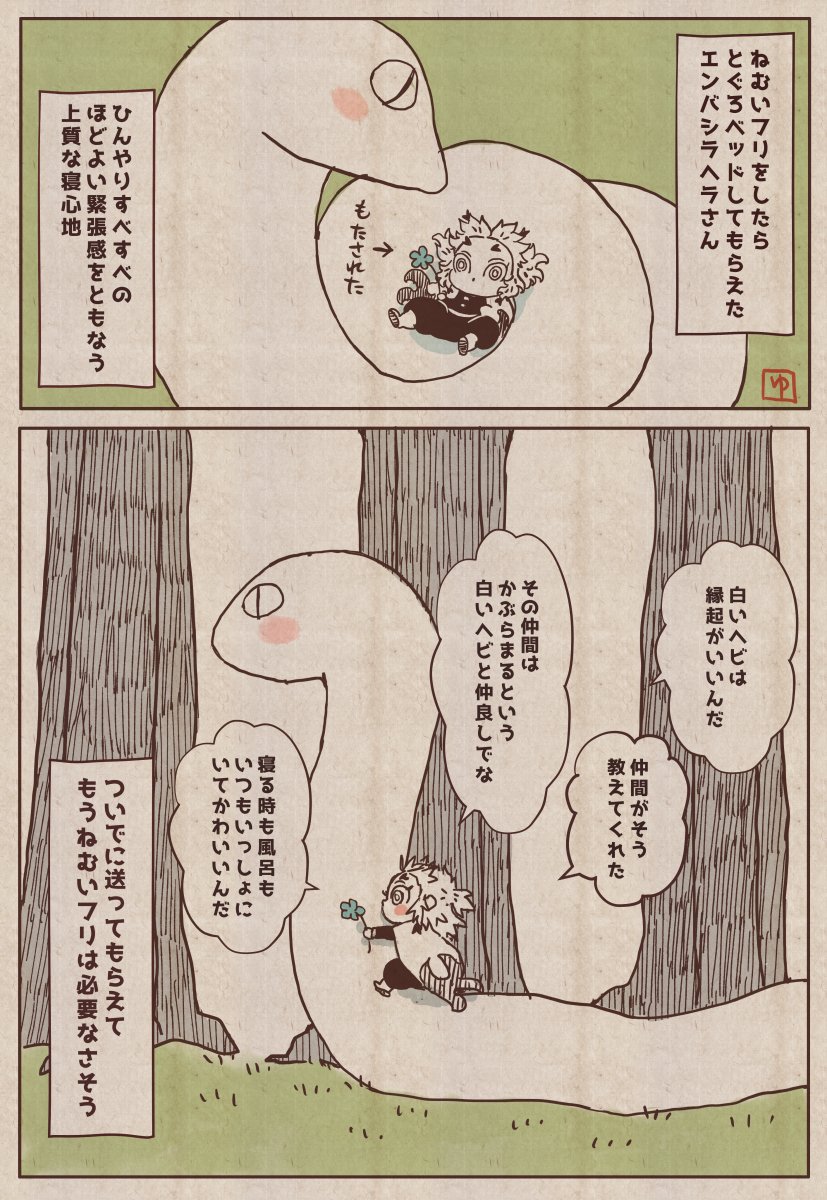 ねむいフリをしたら
とぐろベッドしてもらえた
エンバシラヘラさん
もたされた
→
ひんやりすべすべの
ほどよい緊張感をともなう
上質な寝心地
ゆ
白いヘビは
縁起がいいんだ
仲間がそう
教えてくれた
その仲間は
かぶらまるという
白いヘビと仲良しでな
寝る時も風呂も
いつもいっしょに
いてかわいいんだ
ついでに送ってもらえて
もうねむいフリは必要なさそう